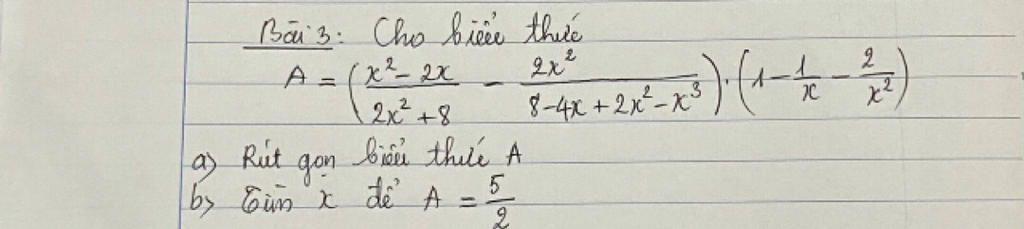 Bài 3: Cho biểu thức
A = (x² - 2x / 2x² + 8 - 2x² / 8 - 4x + 2x² - x³) . (1 - 1/x - 2/x²)
a) Rút gọn biểu thức A
b) Tìm x để A = 5/2